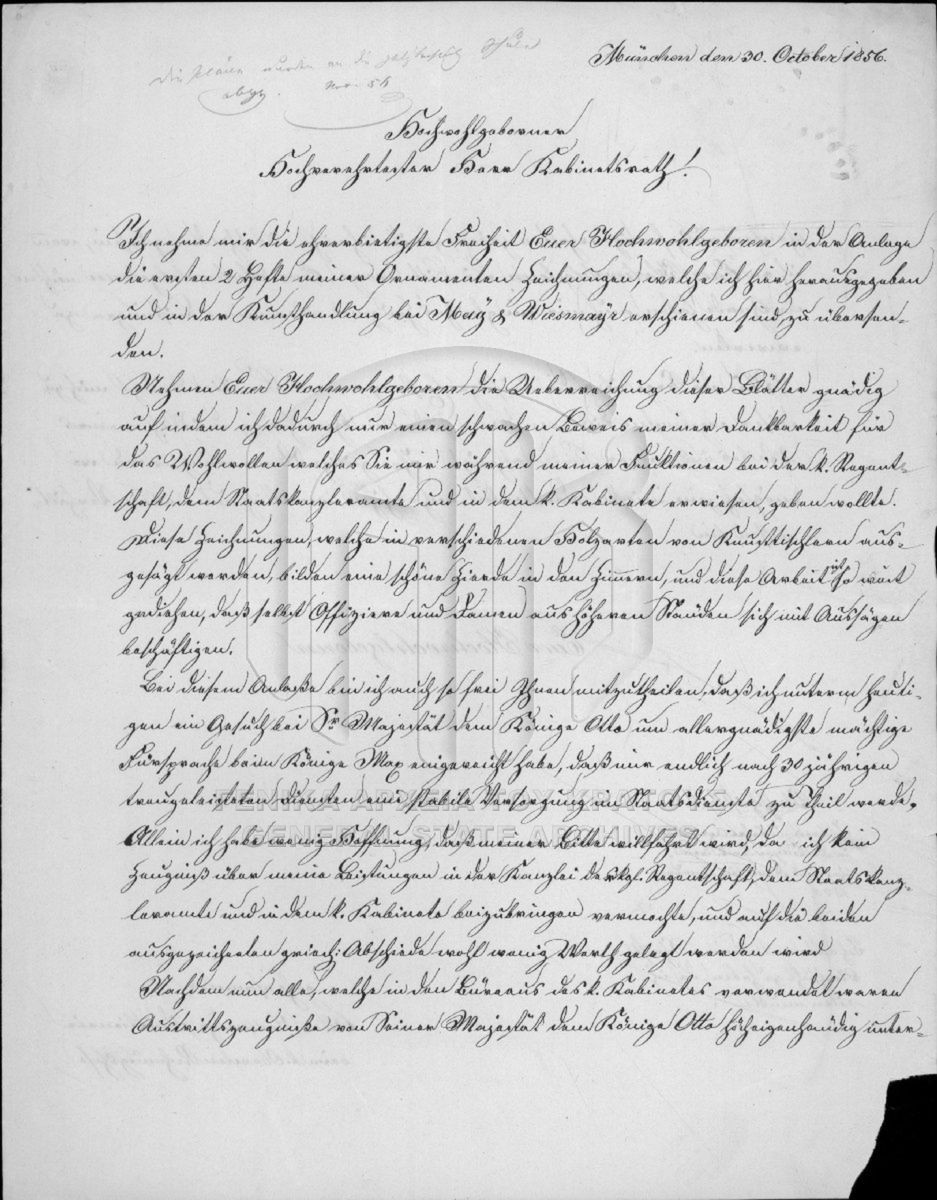 München den 30. October 1856.
die Pläne wurden an die
abgg. Nov. 56
Hochwohlgeborner
Hochverehrtester Herr Kabinetsrath!
Ich nehme mir die ehrerbietigste Freiheit Euer Hochwohlgeboren in der Anlage
die ersten 2 Hefte meiner Ornamenten Zeichnungen, welche ich hier herausgegeben
und in der Kunsthandlung bei May & Wiesmayr erschienen sind, zu übersen-
den.
Nehmen Euer Hochwohlgeboren die Ueberreichung dieser Blätter gnädig
auf indem ich dadurch nur einen schwachen Beweis meiner Dankbarkeit für
das Wohlwollen welches Sie mir während meiner Funktionen bei der k. Regent-
schaft, dem Staatskanzleramte und in dem k. Kabinete erwiesen, geben wollte.
Diese Zeichnungen, welche in verschiedenen Holzarten von Kunsttischlern aus-
gesägt werden, bilden eine schöne Zierde in den Zimmern, und diese Arbeit ist so weit
gediehen, daß selbst Offiziere und Damen aus höheren Ständen sich mit Aussägen
beschäftigen.
Bei diesem Anlaße bin ich auch so frei Ihnen mitzutheilen, daß ich unterm heuti-
gen ein Gesuch bei Sr Majestät dem Könige Otto um allergnädigste mächtige
Fürsprache beim Könige Max eingereicht habe, daß mir endlich nach 30 jährigen
treugeleisteten Diensten eine stabile Versorgung im Staatsdienste zu Theil werde.
Allein ich habe wenig Hoffnung, daß meiner Bitte willfahrt wird, da ich kein
Zeugniß über meine Leistungen in der Kanzlei der kgl. Regentschaft, dem Staatskanz-
leramte und in dem k. Kabinete beizubringen vermochte, und auf die beiden
ausgezeichneten griech: Abschiede wohl wenig Werth gelegt werden wird
Nachdem nun alle, welche in den Büreaus des k. Kabinetes verwendet waren
Austrittszeugniße von Seiner Majestät dem Könige Otto höcheigenhändig unter-
ΓΕΝΙΚΑ ΑΡΧΕΙΑ ΤΟΥ ΚΡΑΤΟΥΣ
GENERAL STATE ARCHIVES